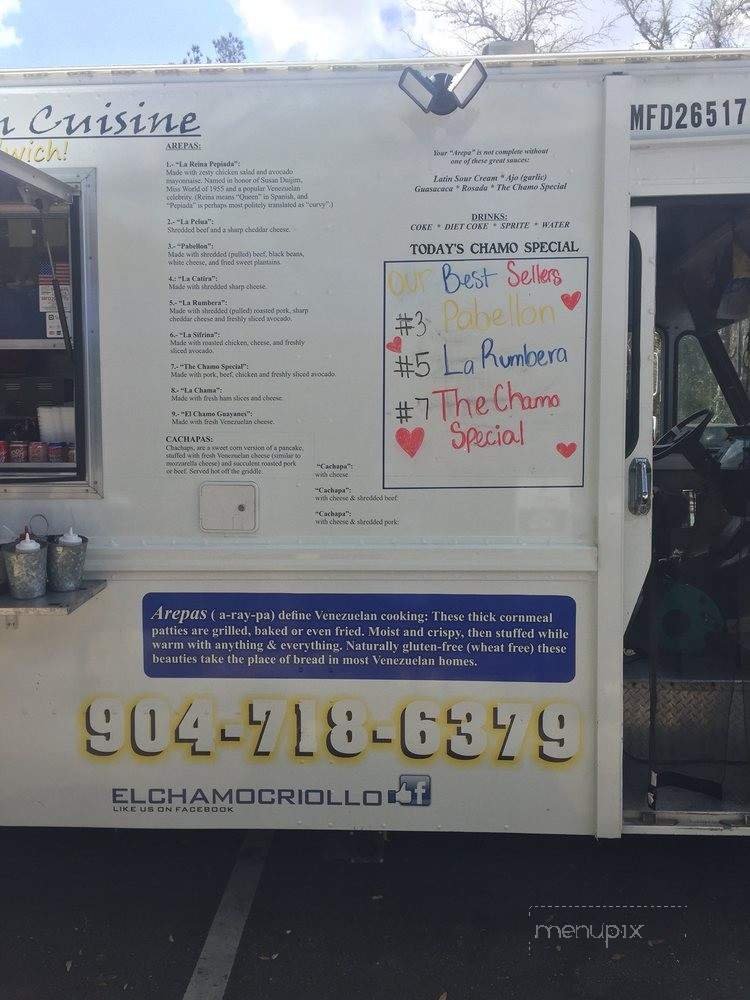 Cuisine
wich!
MFD26517
AREPAS:
1.- "La Reina Pepiada":
Made with zesty chicken salad and avocado
mayonnaise. Named in honor of Susan Duijm,
Miss World of 1955 and a popular Venezuelan
celebrity. (Reina means "Queen" in Spanish, and
"Pepiada" is perhaps most politely translated as "curvy".)
2.- "La Pelua":
Shredded beef and a sharp cheddar cheese.
3.- "Pabellon":
Made with shredded (pulled) beef, black beans,
white cheese, and fried sweet plantains.
4.: "La Catira":
Made with shredded sharp cheese.
5.- "La Rumbera":
Made with shredded (pulled) roasted pork, sharp
cheddar cheese and freshly sliced avocado.
6.- "La Sifrina":
Made with roasted chicken, cheese, and freshly
sliced avocado.
7.- "The Chamo Special":
Made with pork, beef, chicken and freshly sliced avocado.
8.- "La Chama":
Made with fresh ham slices and cheese.
9.- "El Chamo Guayanes":
Made with fresh Venezuelan cheese.
CACHAPAS:
Chachaps, are a sweet corn version of a pancake,
stuffed with fresh Venezuelan cheese (similar to
mozzarella cheese) and succulent roasted pork
or beef. Served hot off the griddle.
"Cachapa":
with cheese
"Cachapa":
with cheese & shredded beef:
"Cachapa":
with cheese & shredded pork:
Your "Arepa" is not complete without
one of these great sauces:
Latin Sour Cream * Ajo (garlic)
Guasacaca * Rosada * The Chamo Special
DRINKS:
COKE * DIET COKE * SPRITE * WATER
TODAY'S CHAMO SPECIAL
Our Best Sellers
#3 Pabellon
#5 La Rumbera
#7 The Chamo
Special
Arepas ( a-ray-pa) define Venezuelan cooking: These thick cornmeal
patties are grilled, baked or even fried. Moist and crispy, then stuffed while
warm with anything & everything. Naturally gluten-free (wheat free) these
beauties take the place of bread in most Venezuelan homes.
904-718-6379
ELCHAMOCRIOLLO f
LIKE US ON FACEBOOK
menupix